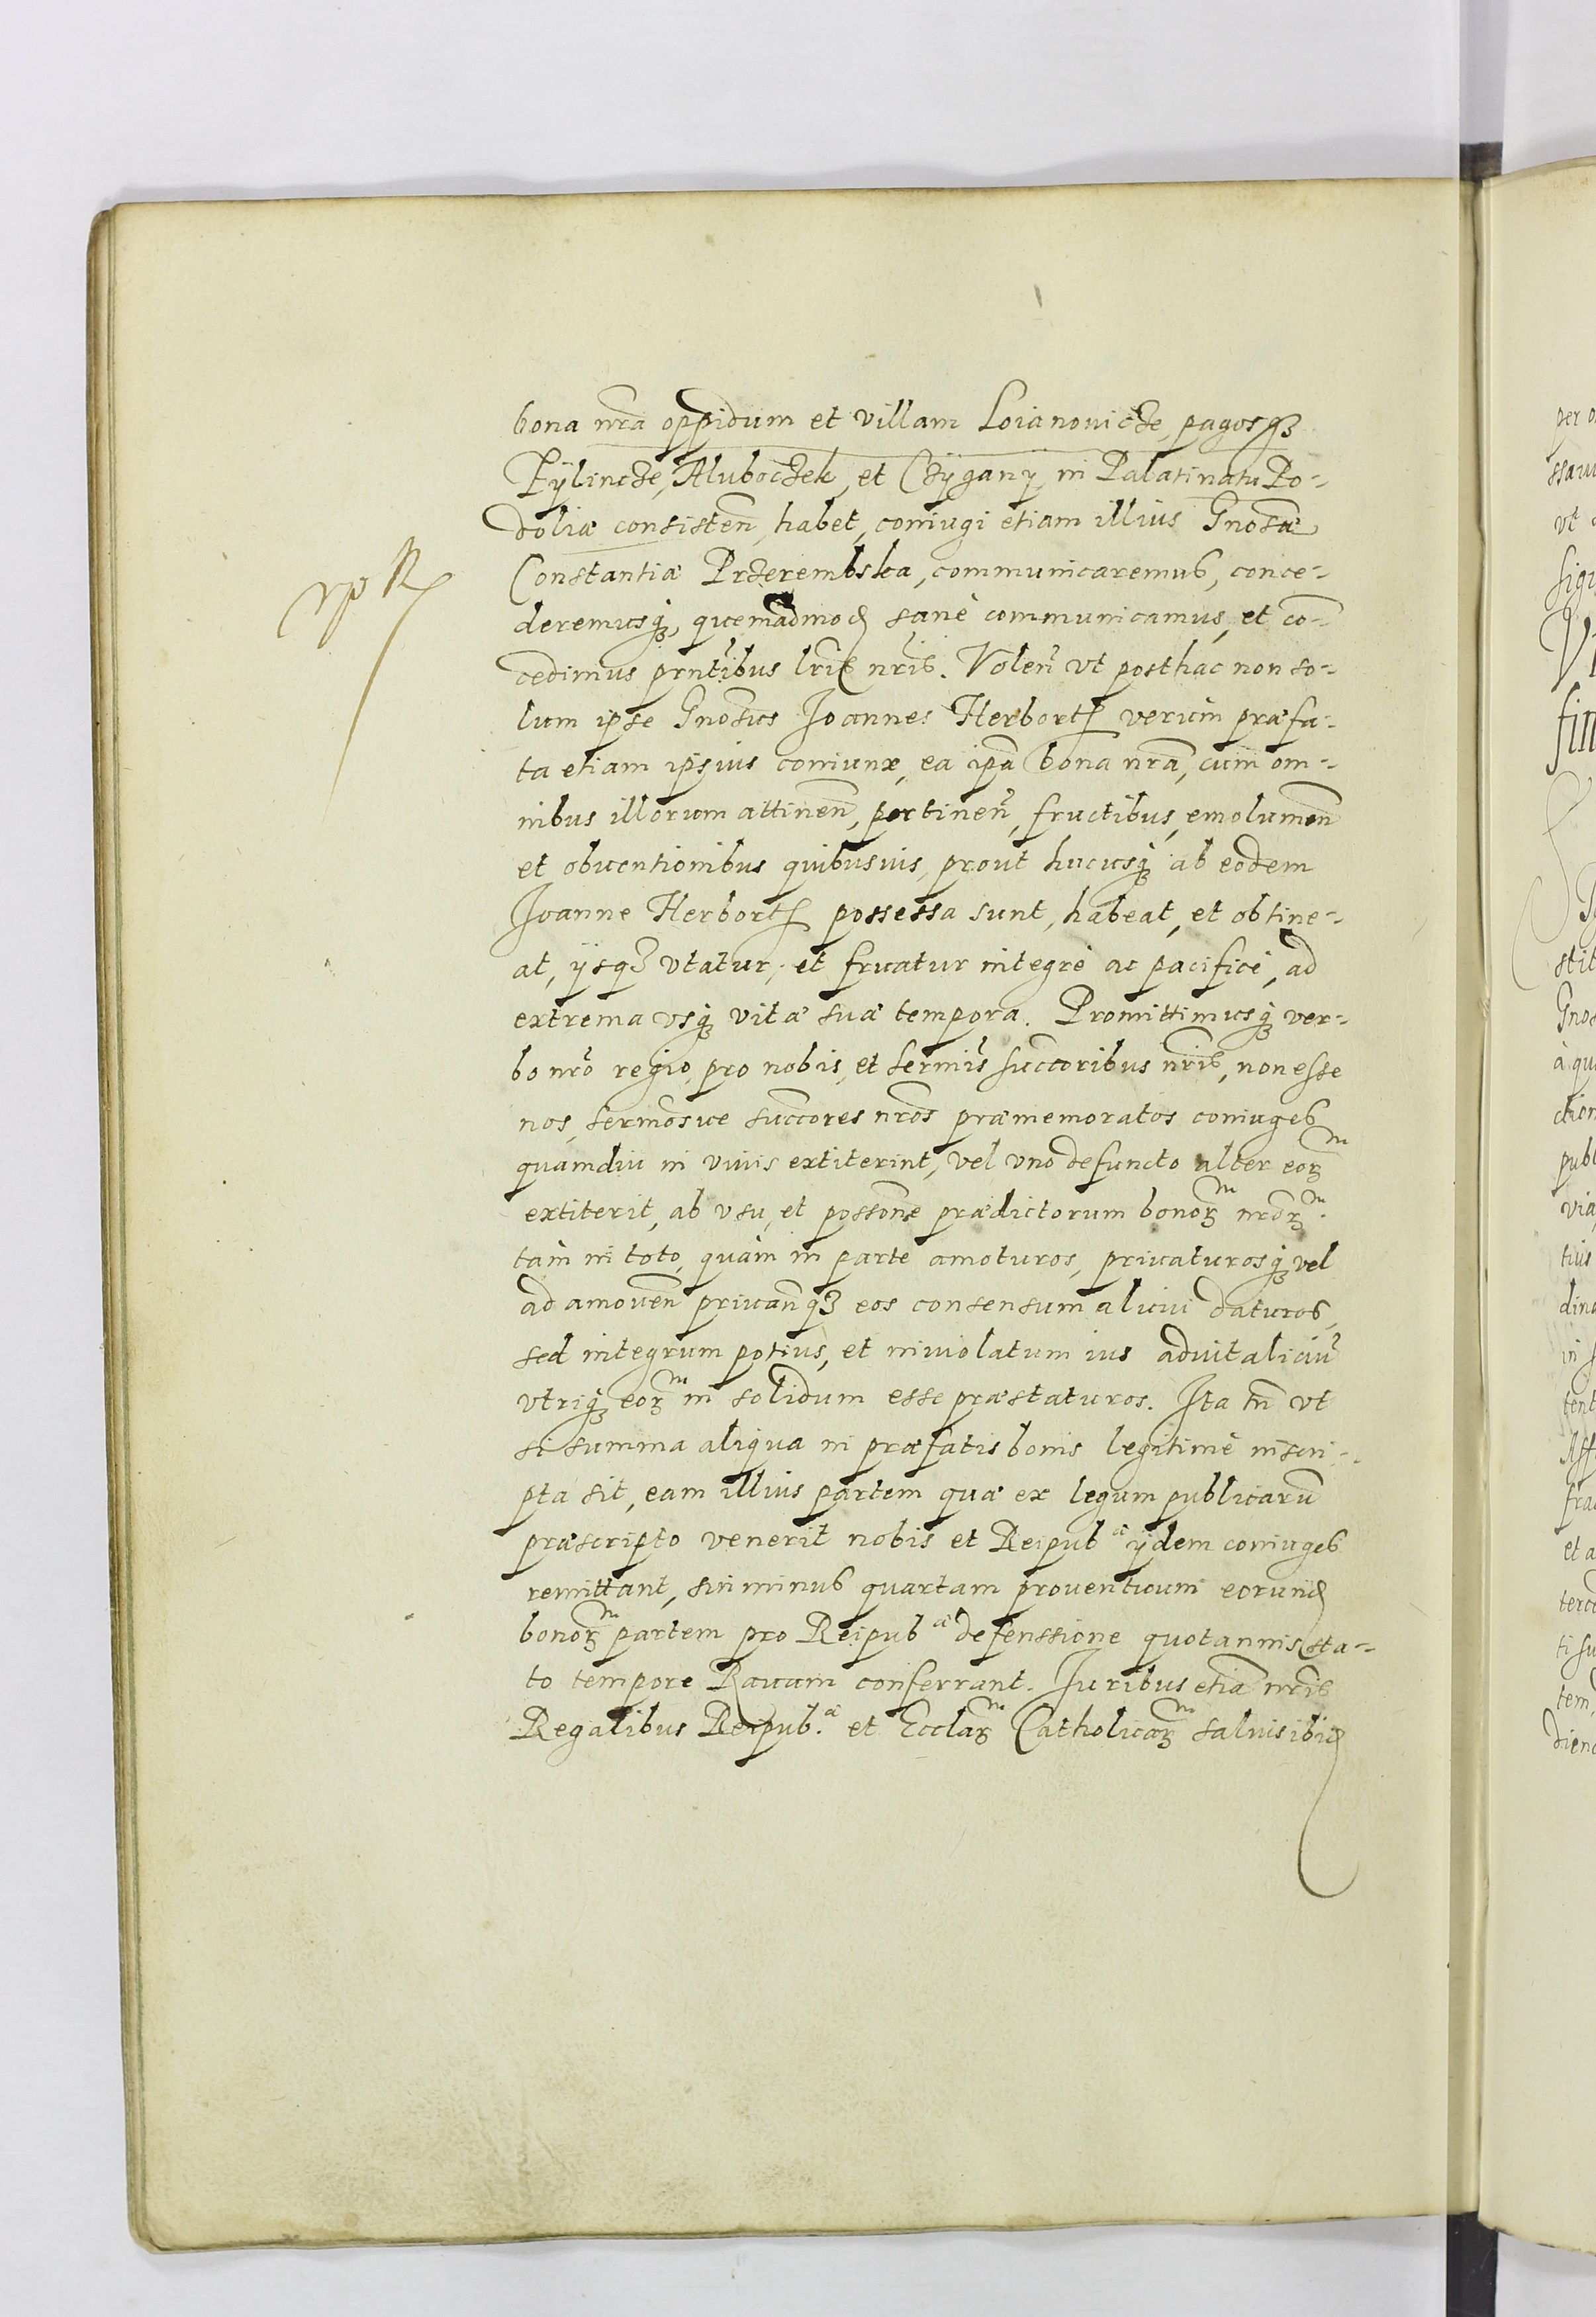 bona nrã oppidum et villam Loianouicze, pagosqꝫ
Pÿlincze, Hluboczek, et Czÿganÿ in Palatinatu Po-
doliæ consisteñ habet, coniugi etiam illius Gnosæ
Constantiæ Przerembska, communicaremus, conce-
deremusqꝫ, quemadmod sanè communicamus, et cõ-
cedimus prñtibus lris nris. Voleñ vt posthac non so-
lum ipse Gnosus Joannes Herbort, verum præfa-
ta etiam ipsius coniunx, ea ipã bona nrã, cum om-
nibus illorum attineñ, pertineñ, fructibus, emolumeñ
et obuentionibus quibusuis, prout hucusqꝫ ab eodem
Joanne Herbort possessa sunt, habeat, et obtine-
at, ÿsqꝫ vtatur, et fruatur integrè ac pacificè, ad
extrema vsqꝫ vitæ suæ tempora. Promittimusqꝫ ver-
bo nrõ regio, pro nobis, et sermis succoribus nris, non esse
nos, sermosue succores nros præmemoratos coniuges
quamdiu in viuis extiterint, vel vno defuncto alter eoꝝm
extiterit, ab vsu, et possone prædictorum bonoꝝm nroꝝm.
tam in toto, quàm in parte amoturos, priuaturosqꝫ vel
ad amoueñ priuañqꝫ eos consensum alicui daturos,
sed integrum potius, et inuiolatum ius aduitaliciũ
vtriqꝫ eoꝝm in solidum esse præstaturos. Ita tñ vt
si summa aliqua in præfatis bonis legitimè inscri-
pta sit, eam illius partem quæ ex legum publicarũ
præscripto venerit nobis et Reipubæ ÿdem coniuges
remittant, sin minus quartam prouentuum eorund
bonoꝝm partem pro Reipubæ defenssione quotannis sta-
to tempore Rauam conferrant. Juribus etiã nris
Regalibus Reipub.æ et Ecclaꝝm Catholicaꝝm saluis ibid